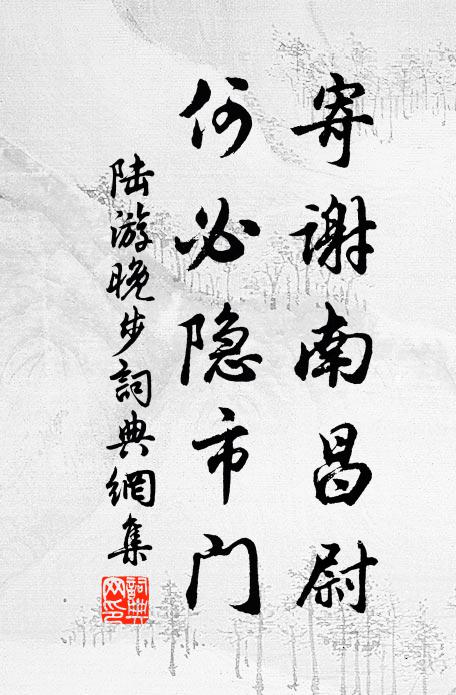 寄谢南昌尉
何必隐市门
陆游晚步詞典網集